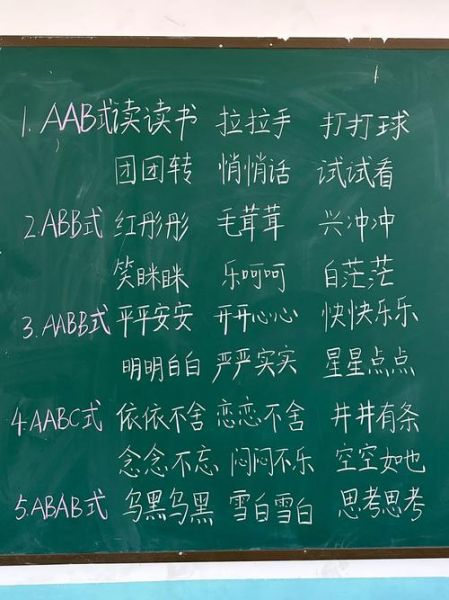 1. AAB式 读读书 拉拉手 打打球
团团转 悄悄话 试试看
2. ABB式 红彤彤 毛茸茸 兴冲冲
笑眯眯 乐呵呵 白茫茫
3. AABB式 平平安安 开开心心 快快乐乐
明明白白 严严实实 星星点点
4. AABC式 依依不舍 恋恋不舍 井井有条
念念不忘 闷闷不乐 空空如也
5. ABAB式 乌黑乌黑 雪白雪白 思考思考